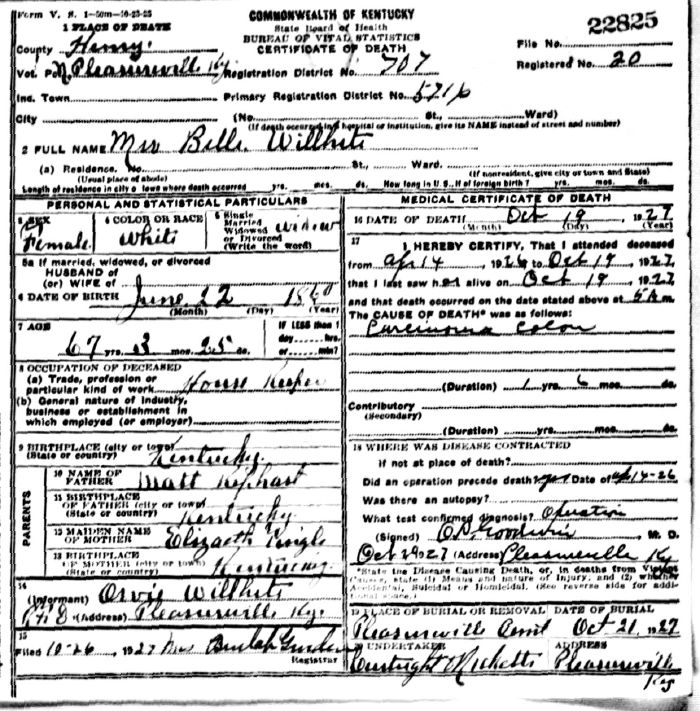 Form V. S. 1-50m-10-23-25
COMMONWEALTH OF KENTUCKY
State Board of Health
BUREAU OF VITAL STATISTICS
CERTIFICATE OF DEATH
22825
1 PLACE OF DEATH
County Henry
File No.
Vot. Pct. N Pleasureville Ky Registration District No. 707
Registered No. 20
Inc. Town Primary Registration District No. 5716
City (No. St., Ward)
(If death occurred in a hospital or institution, give its NAME instead of street and number)
2 FULL NAME Mrs Belle Willhite
(a) Residence. No. St., Ward.
(Usual place of abode) (If nonresident, give city or town and State)
Length of residence in city or town where death occurred yrs. mos. ds. How long in U. S., if of foreign birth? yrs. mos. ds.
PERSONAL AND STATISTICAL PARTICULARS
3 SEX Female
4 COLOR OR RACE White
5 Single Married Widowed or Divorced (Write the word) Widow
5a If married, widowed, or divorced
HUSBAND of
(or) WIFE of
6 DATE OF BIRTH June 22 1860
(Month) (Day) (Year)
7 AGE 67 yrs. 3 mos. 25 ds.
IF LESS than 1 day hrs. or min?
8 OCCUPATION OF DECEASED
(a) Trade, profession or particular kind of work House Keeper
(b) General nature of industry, business or establishment in which employed (or employer)
9 BIRTHPLACE (city or town)
(State or country) Kentucky
PARENTS
10 NAME OF FATHER Matt Kephart
11 BIRTHPLACE OF FATHER (city or town)
(State or country) Kentucky
12 MAIDEN NAME OF MOTHER
13 BIRTHPLACE OF MOTHER (city or town)
(State or country) Kentucky
14
(Informant) Orvie Willhite
(Address) Pleasureville Ky.
15
Filed 10-26, 1927 Mrs Beulah
Registrar
MEDICAL CERTIFICATE OF DEATH
16 DATE OF DEATH Oct 19 1927
(Month) (Day) (Year)
17
I HEREBY CERTIFY, That I attended deceased
from Apr 14, 1926 to Oct 19, 1927
that I last saw her alive on Oct 19, 1927
and that death occurred on the date stated above at 5 A m.
The CAUSE OF DEATH* was as follows:
Carcinoma Colon
(Duration) 1 yrs. 6 mos. ds.
Contributory
(Secondary)
(Duration) yrs. mos. ds.
18 WHERE WAS DISEASE CONTRACTED
if not at place of death?
Did an operation precede death? yes Date of Apr 14-26
Was there an autopsy?
What test confirmed diagnosis? Operation
(Signed) O.P. Goodwin M. D.
Oct 29 1927 (Address) Pleasureville Ky
*State the Disease Causing Death, or, in deaths from Violent Causes, state (1) Means and nature of Injury, and (2) whether Accidental, Suicidal or Homicidal. (See reverse side for additional space.)
19 PLACE OF BURIAL OR REMOVAL DATE OF BURIAL
Pleasureville Cemt Oct 21, 1927
20 UNDERTAKER ADDRESS
Ricketts Pleasureville
Ky